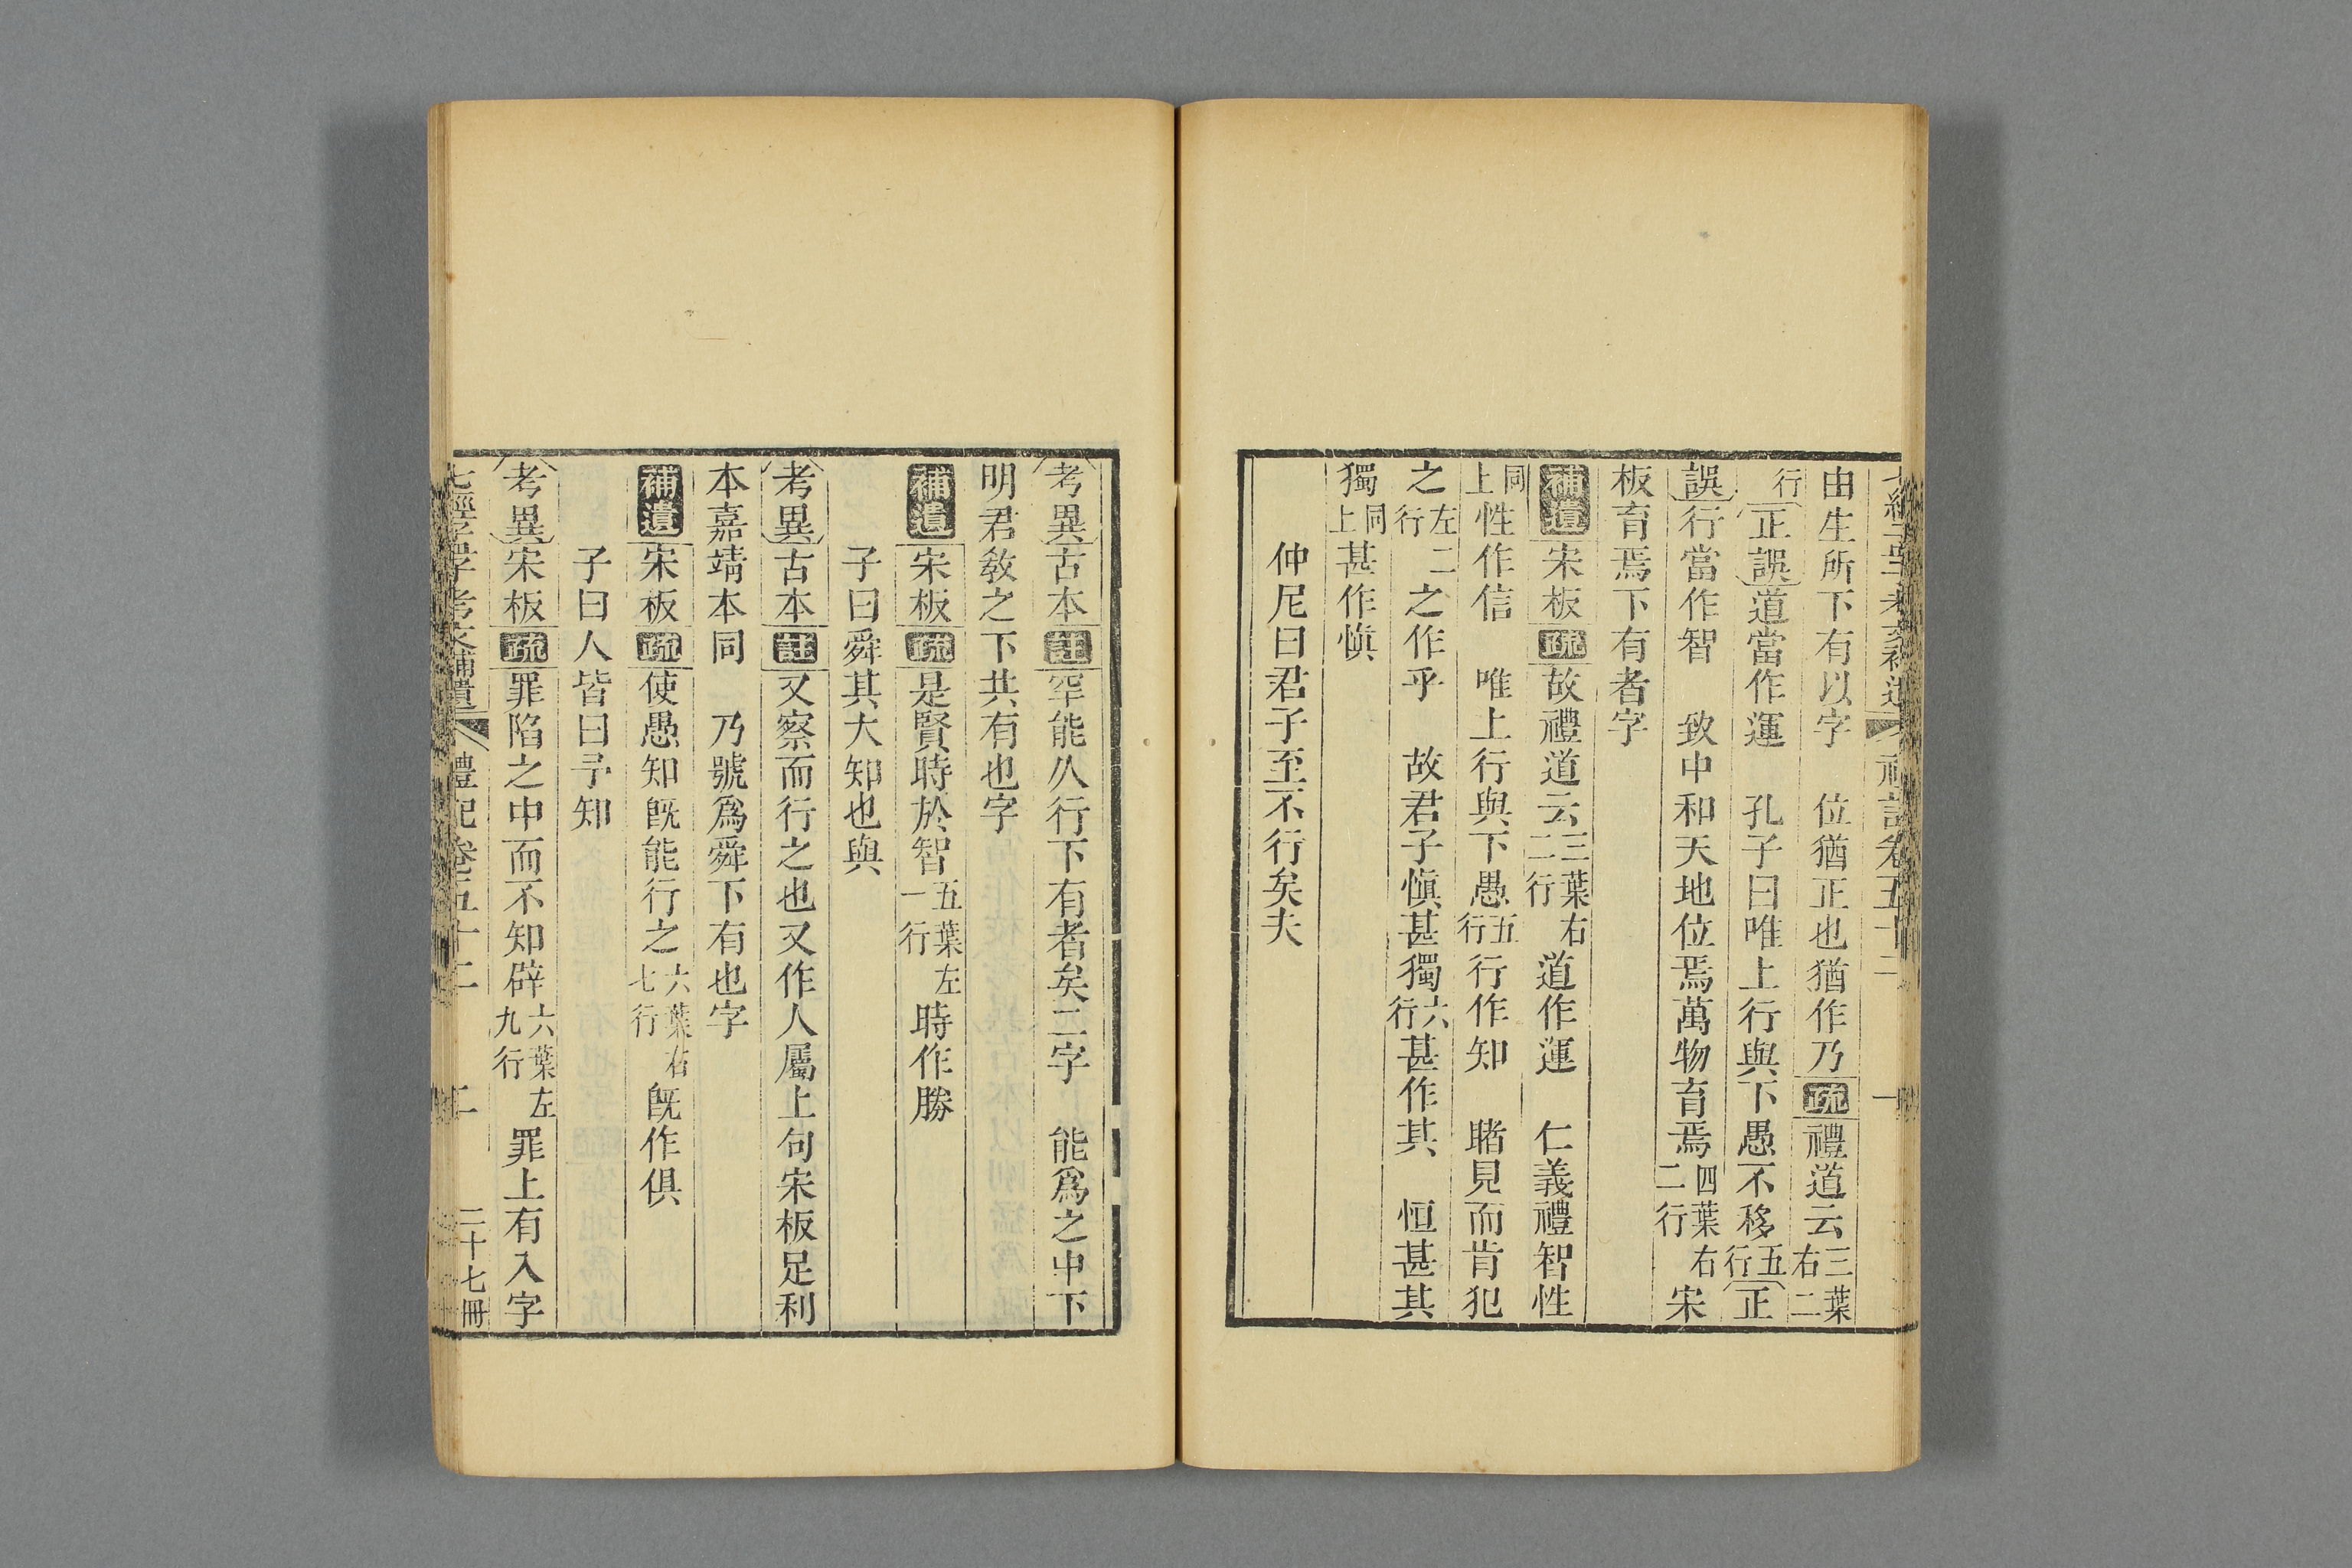 七經孟子考文補遺 禮記卷五十二 一
由生所下有以字 位猶正也猶作乃疏禮道云三葉右二
行正誤道當作運 孔子曰唯上行與下愚不移五行正
誤行當作智 致中和天地位焉萬物育焉四葉右二行宋
板育焉下有者字
補遺宋板疏故禮道云三葉右二行道作運 仁義禮智性
同上性作信 唯上行與下愚五行行作知 睹見而肯犯
之左行二之作乎 故君子愼甚獨六行甚作其 恒甚其
獨同上甚作愼
仲尼曰君子至不行矣夫
考異古本註罕能久行下有者矣二字 能爲之中下
明君敎之下共有也字
補遺宋板疏是賢時於智五葉左一行時作勝
子曰舜其大知也與
考異古本註又察而行之也又作人屬上句宋板足利
本嘉靖本同 乃號爲舜下有也字
補遺宋板疏使愚知旣能行之六葉右七行旣作俱
子曰人皆曰予知
考異宋板疏罪陷之中而不知辟六葉左九行罪上有入字
七經孟子考文補遺 禮記卷五十二 二 二十七冊